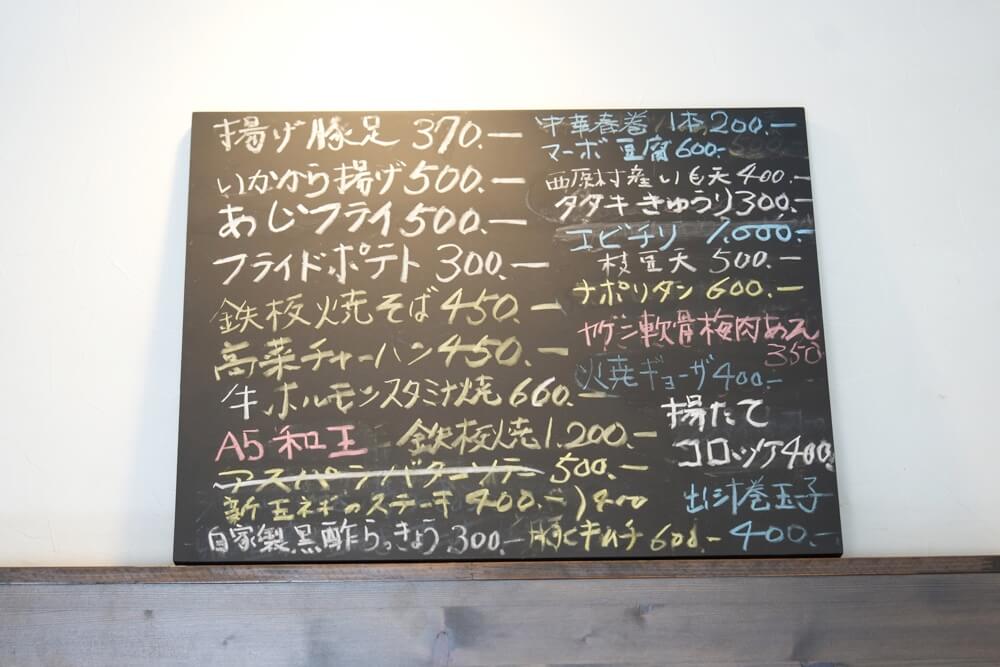 揚げ豚足 370.—
いかから揚げ 500.—
あじフライ 500.—
フライドポテト 300.—
鉄板焼そば 450.—
高菜チャーハン 450.—
牛ホルモンスタミナ焼 660.—
A5和王 鉄板焼 1.200.—
アスパラバターソテー 500.—
新玉ネギのステーキ 400.—
自家製黒酢らっきょう 300.—
中華春巻 1本 200.—
マーボ豆腐 600.-
西原村産いも天 400.—
タタキきゅうり 300.—
エビチリ 1,000.—
枝豆天 500.—
ナポリタン 600.—
ヤゲン軟骨梅肉あえ
350
火焼ギョーザ 400.-
揚たて
コロッケ 400.
出汁巻玉子
400.—
豚キムチ 600.-